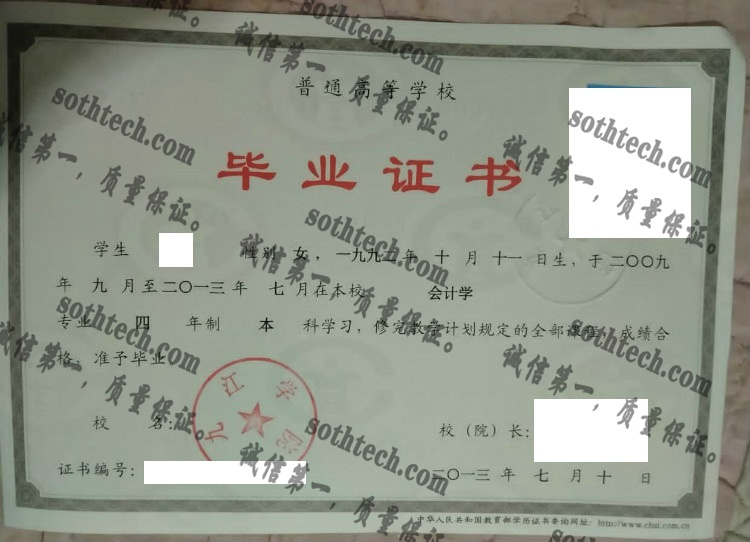 普通高等学校
毕业证书
学生 性别 女，一九九二年 十 月 十一 日生，于二〇〇九
年 九 月至二〇一三年 七 月在本校 会计学
专业 四 年制 本 科学习，修完教学计划规定的全部课程，成绩合
格，准予毕业
九江学院
校 名：
校（院）长：
证书编号：
二〇一三 年 七 月 十 日
中华人民共和国教育部学历证书查询网址：http://www.chsi.com.cn
sothtech.com
诚信第一，质量保证。
sothtech.com
诚信第一，质量保证。
sothtech.com
诚信第一，质量保证。
sothtech.com
诚信第一，质量保证。
sothtech.com
诚信第一，质量保证。
sothtech.com
诚信第一，质量保证。
sothtech.com
诚信第一，质量保证。
sothtech.com
sothtech.com